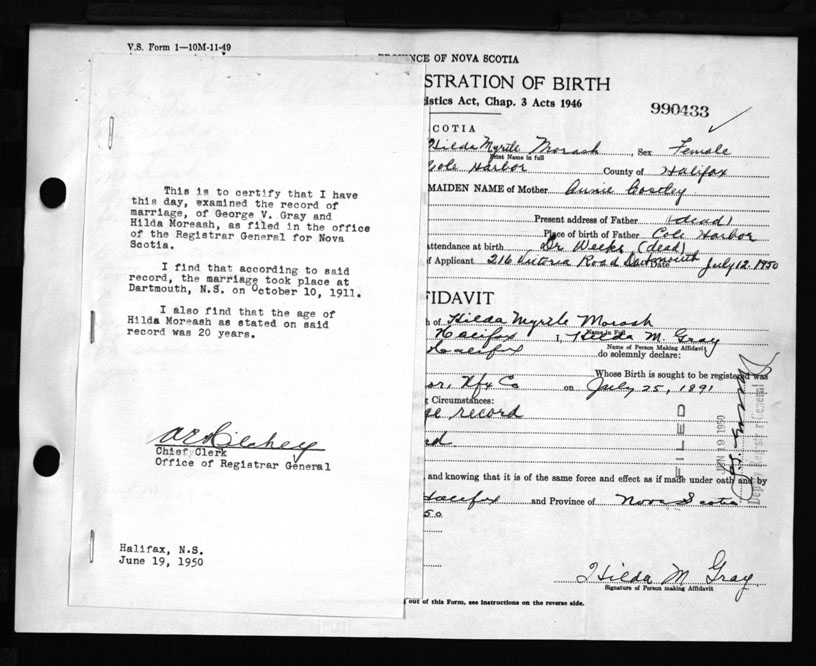 V.S. Form 1—10M-11-49
This is to certify that I have
this day, examined the record of
marriage, of George V. Gray and
Hilda Moreash, as filed in the office
of the Registrar General for Nova
Scotia.
I find that according to said
record, the marriage took place at
Dartmouth, N.S. on October 10, 1911.
I also find that the age of
Hilda Moreash as stated on said
record was 20 years.
Chief Clerk
Office of Registrar General
Halifax, N.S.
June 19, 1950
NCE OF NOVA SCOTIA
STRATION OF BIRTH
istics Act, Chap. 3 Acts 1946
990433
COTIA
Hilda Myrtle Morash, Sex Female
Print Name in full
Cole Harbor County of Halifax
MAIDEN NAME of Mother Annie
Present address of Father (dead)
Place of birth of Father Cole Harbor
attendance at birth Dr Weeks (dead)
f Applicant 216 Victoria Road Dartmouth Date July 12. 1950
FIDAVIT
h of Hilda Myrtle Morash
Name in Full
Halifax I, Hilda M. Gray
Name of Person Making Affidavit
Halifax do solemnly declare:
Whose Birth is sought to be registered was
or, Hfx Co on July 25, 1891
g Circumstances:
ge record
rd
FILED
, and knowing that it is of the same force and effect as if made under oath and by
Halifax and Province of Nova Scotia
50
Hilda M Gray
Signature of Person making Affidavit
out of this Form, see instructions on the reverse side.